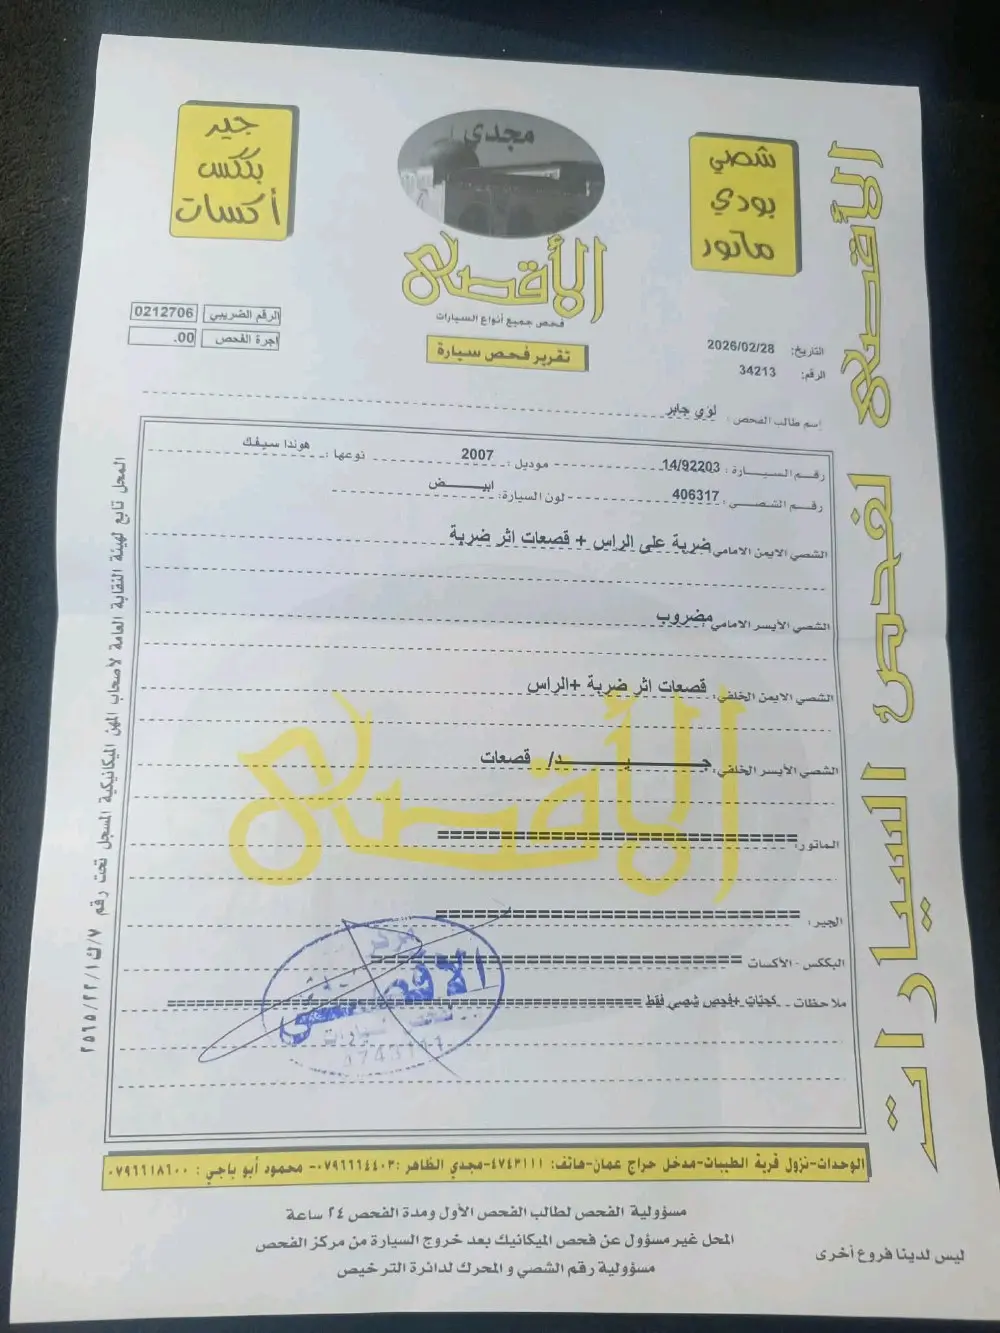 جير
بككس
أكسات
مجدي
الأقصى
فحص جميع أنواع السيارات
تقرير فحص سيارة
شصي
بودي
ماتور
الأقصى لفحص السيارات
الرقم الضريبي 0212706
اجرة الفحص .00
التاريخ: 2026/02/28
الرقم: 34213
إسم طالب الفحص : لؤي جابر
رقم السيارة : 14/92203 موديل : 2007 نوعها : هوندا سيفك
رقم الشصي : 406317 لون السيارة: ابيض
الشصي الايمن الامامي ضربة على الراس + قصعات اثر ضربة
الشصي الأيسر الامامي مضروب
الشصي الايمن الخلفي: قصعات اثر ضربة +الراس
الشصي الأيسر الخلفي: جيد/ قصعات
الماتور: ==============================
الجير : ==============================
البككس - الأكسات ==============================
ملاحظات - كجيات +فحص شصي فقط ==============================
مركز
الاقصى
4743111
المحل تابع لهيئة النقابة العامة لأصحاب المهن الميكانيكية المسجل تحت رقم ٧/ك/٢٢/١/٢٥٦٥
الوحدات-نزول قرية الطيبات-مدخل حراج عمان-هاتف: ٤٧٤٣١١١-مجدي الظاهر :٠٧٩٦٦٦٤٤٠٣- محمود أبو باجي : ٠٧٩٦٦١٨٦٠٠
مسؤولية الفحص لطالب الفحص الأول ومدة الفحص ٢٤ ساعة
المحل غير مسؤول عن فحص الميكانيك بعد خروج السيارة من مركز الفحص
مسؤولية رقم الشصي و المحرك لدائرة الترخيص
ليس لدينا فروع أخرى